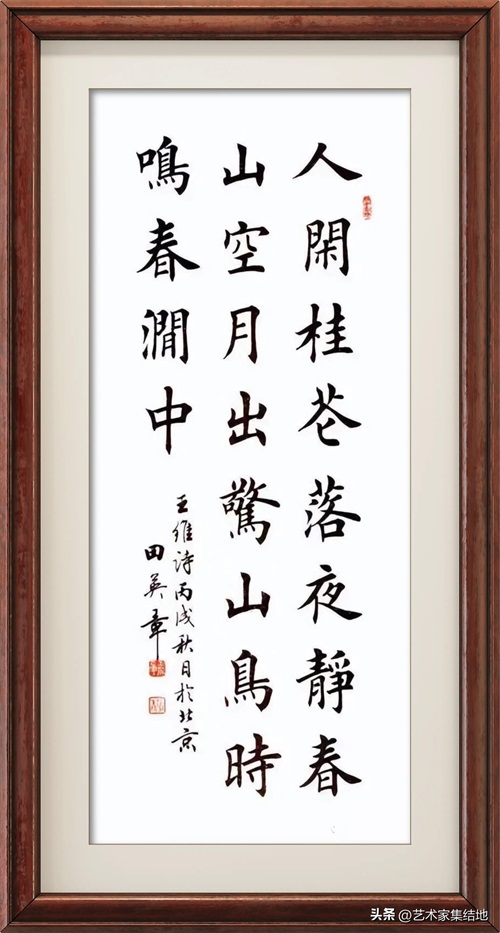 人閑桂花落夜靜春
山空月出驚山鳥時
鳴春澗中
王維詩丙戌秋日於北京
田英章
头条@艺术家集结地